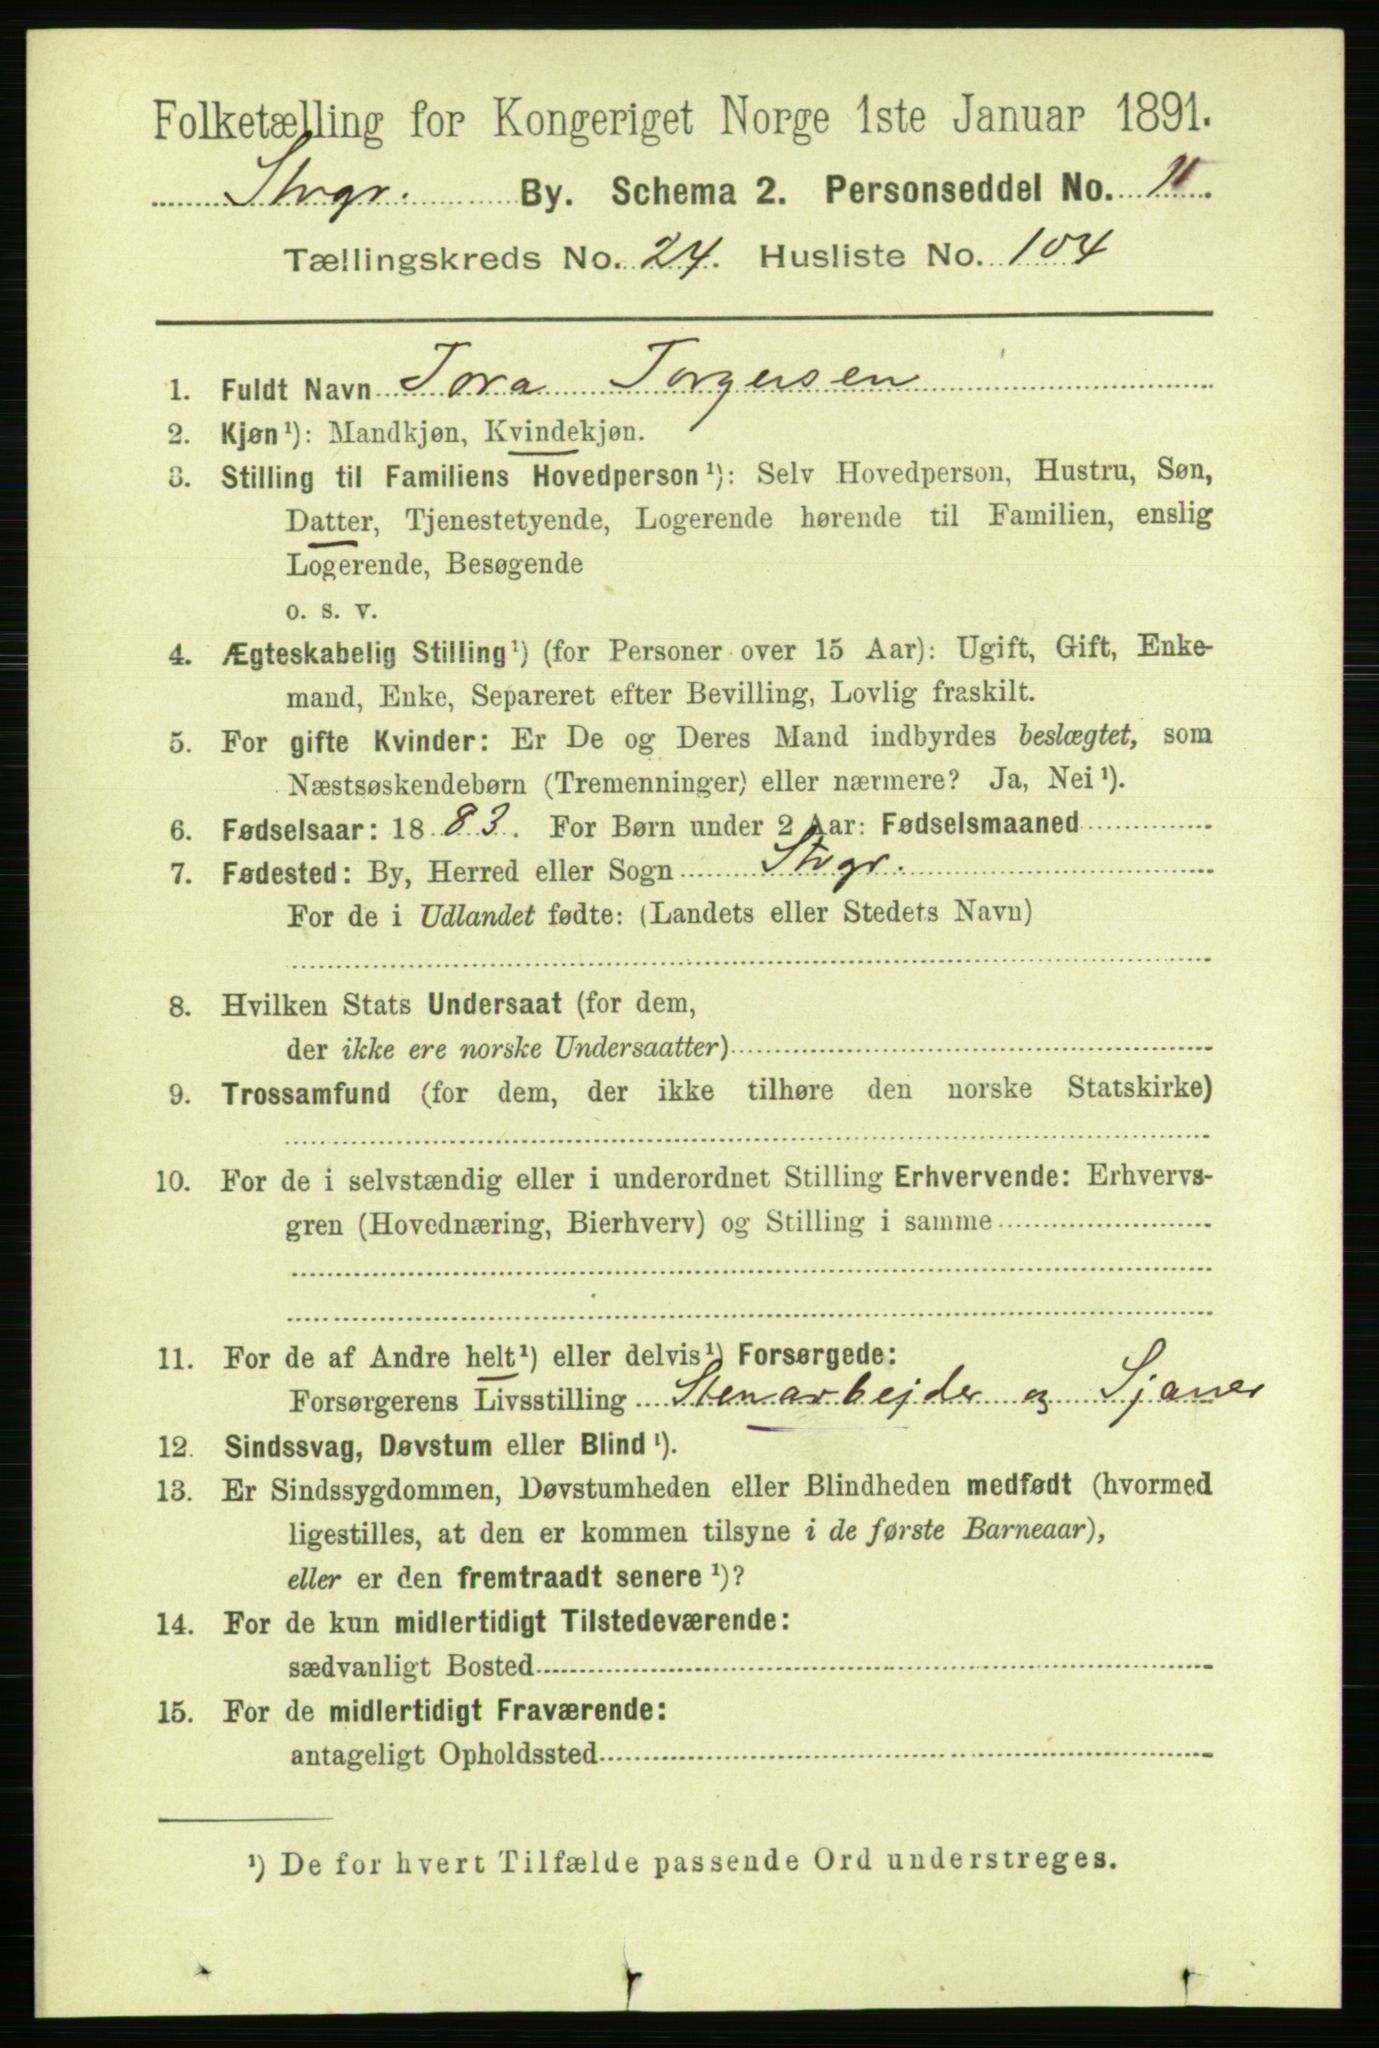 Folketælling for Kongeriget Norge 1ste Januar 1891.
Stvgr. By. Schema 2. Personseddel No. 11.
Tællingskreds No. 24. Husliste No. 104
1. Fuldt Navn Tora Torgersen
2. Kjøn¹): Mandkjøn, Kvindekjøn.
3. Stilling til Familiens Hovedperson¹): Selv Hovedperson, Hustru, Søn,
Datter, Tjenestetyende, Logerende hørende til Familien, enslig
Logerende, Besøgende
o. s. v.
4. Ægteskabelig Stilling¹) (for Personer over 15 Aar): Ugift, Gift, Enke-
mand, Enke, Separeret efter Bevilling, Lovlig fraskilt.
5. For gifte Kvinder: Er De og Deres Mand indbyrdes beslægtet, som
Næstsøskendebørn (Tremenninger) eller nærmere? Ja, Nei¹).
6. Fødselsaar: 1883. For Børn under 2 Aar: Fødselsmaaned
7. Fødested: By, Herred eller Sogn Stvgr.
For de i Udlandet fødte: (Landets eller Stedets Navn)
8. Hvilken Stats Undersaat (for dem,
der ikke ere norske Undersaatter)
9. Trossamfund (for dem, der ikke tilhøre den norske Statskirke)
10. For de i selvstændig eller i underordnet Stilling Erhvervende: Erhvervs-
gren (Hovednæring, Bierhverv) og Stilling i samme
11. For de af Andre helt¹) eller delvis¹) Forsørgede:
Forsørgerens Livsstilling Stenarbejder og Sjauer
12. Sindssvag, Døvstum eller Blind¹).
13. Er Sindssygdommen, Døvstumheden eller Blindheden medfødt (hvormed
ligestilles, at den er kommen tilsyne i de første Barneaar),
eller er den fremtraadt senere¹)?
14. For de kun midlertidigt Tilstedeværende:
sædvanligt Bosted
15. For de midlertidigt Fraværende:
antageligt Opholdssted
¹) De for hvert Tilfælde passende Ord understreges.